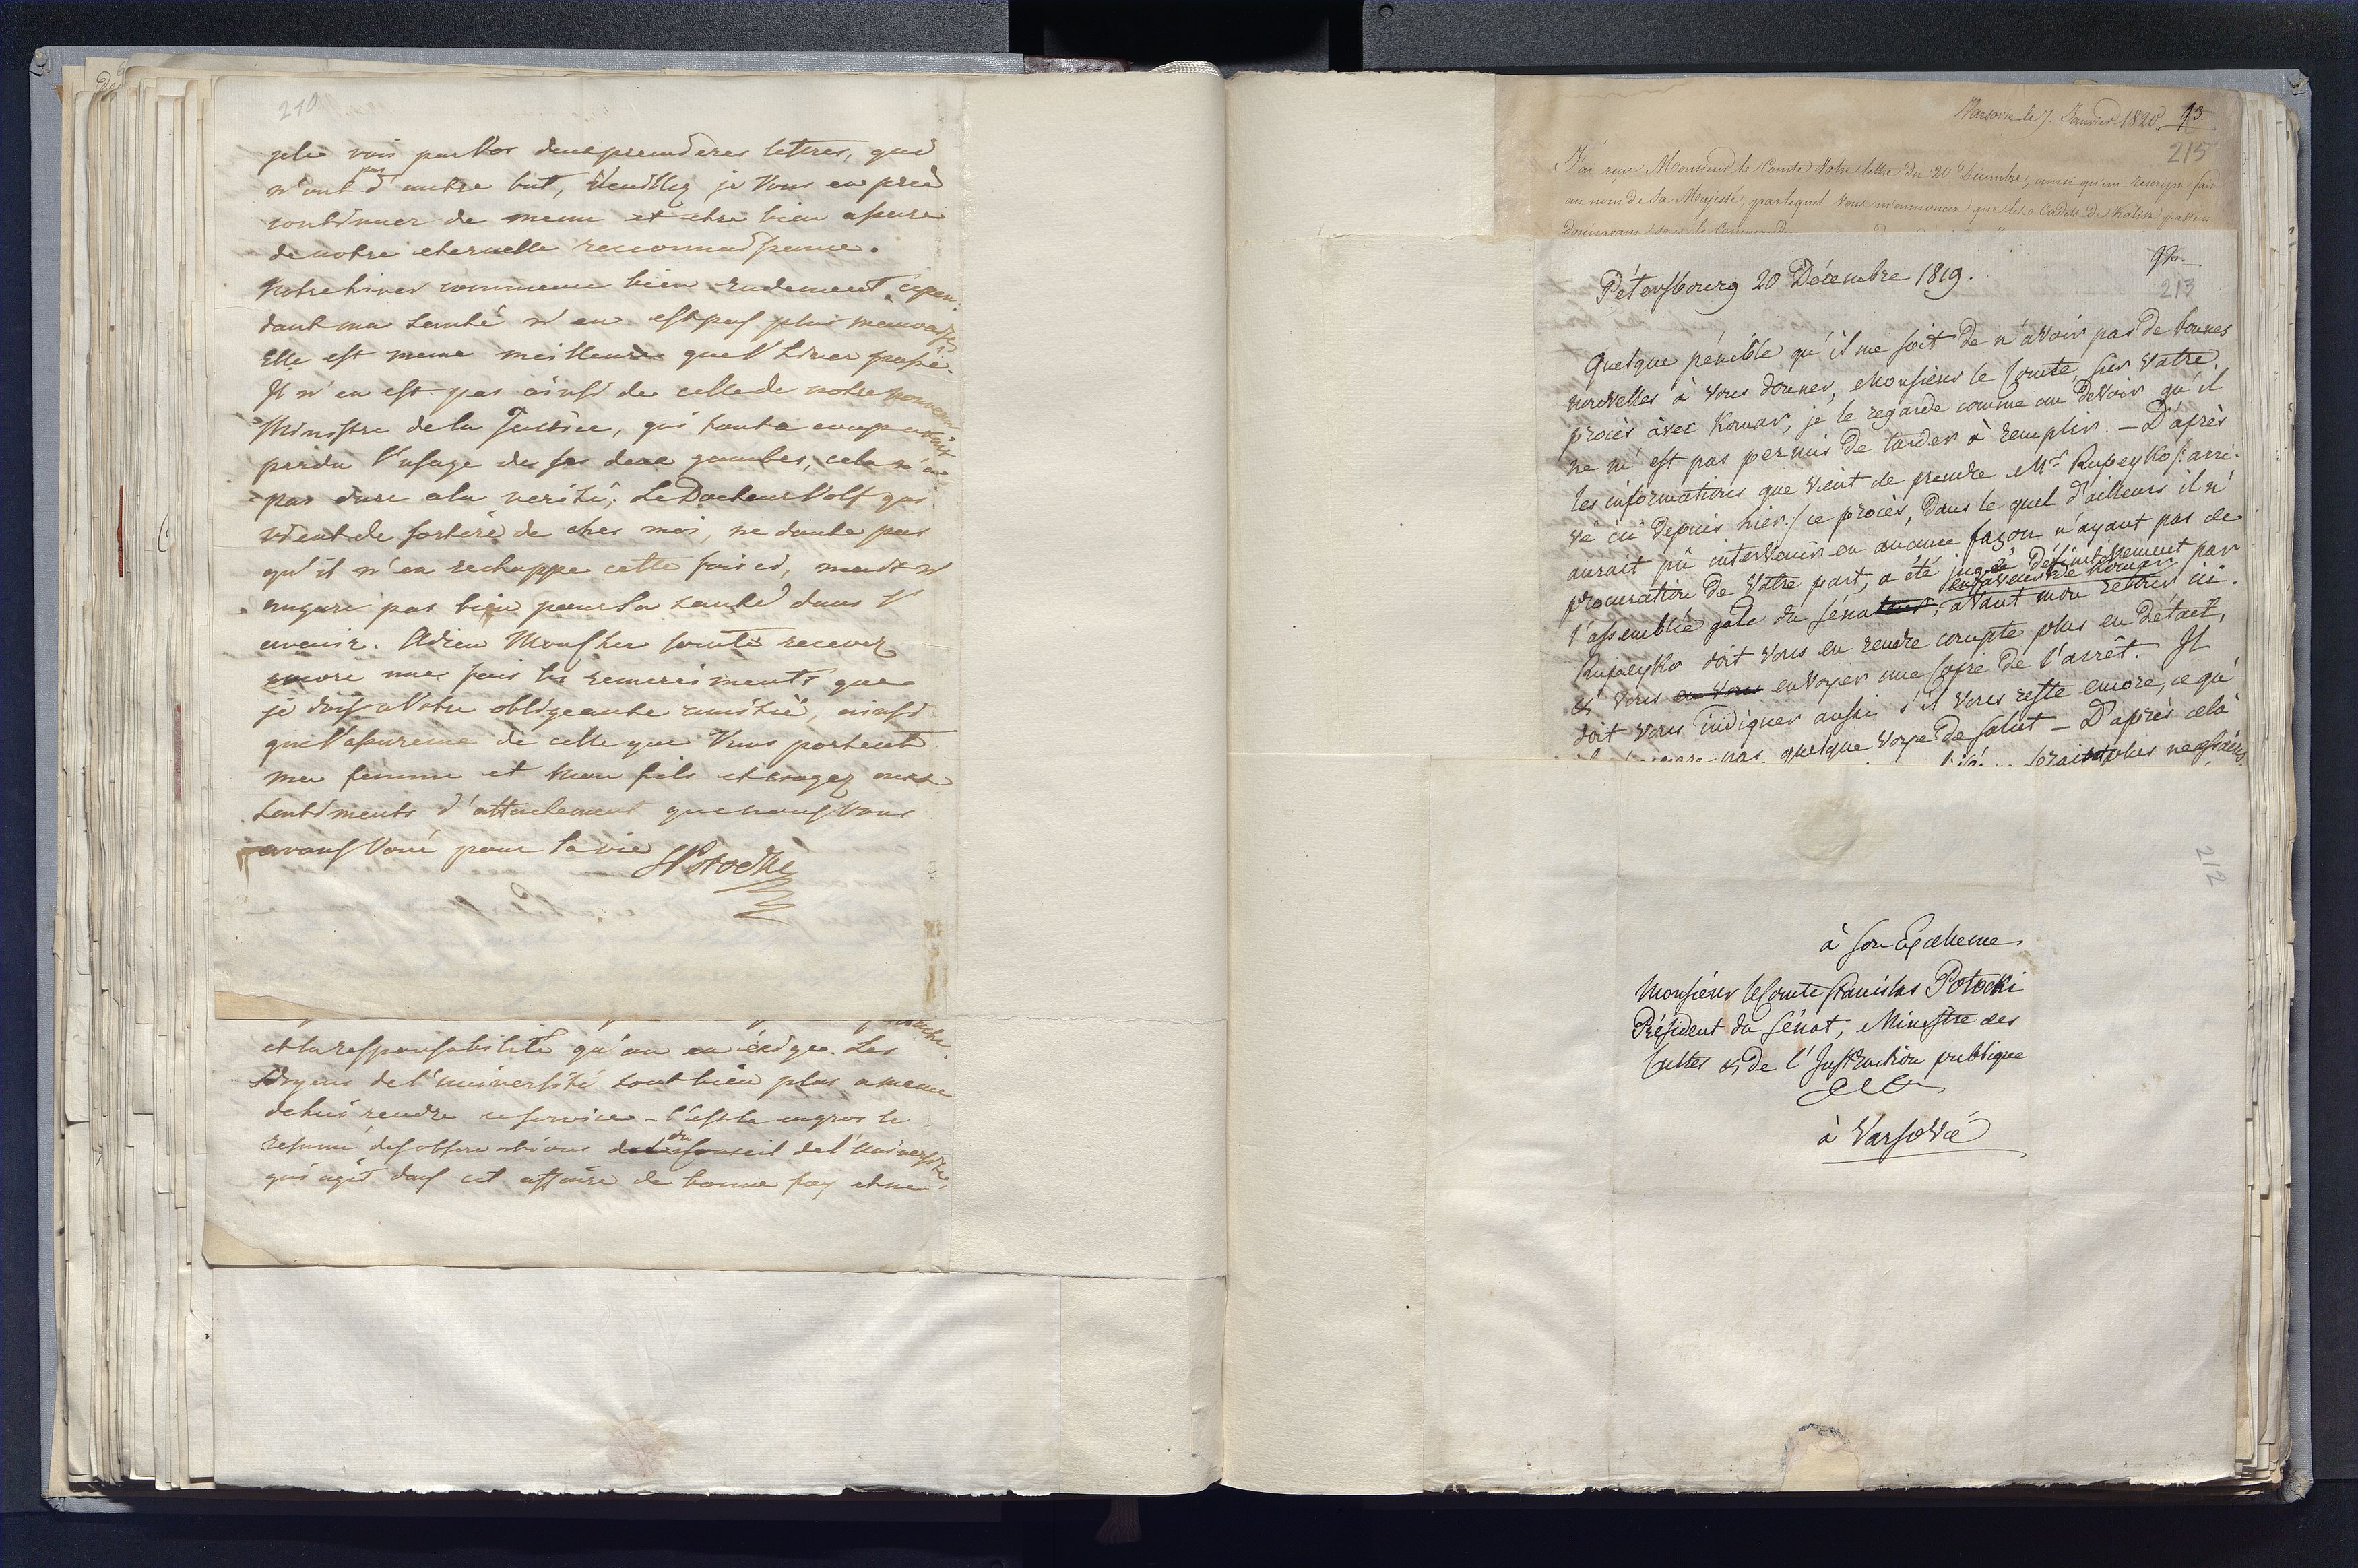 210
je le vois par Vos deux premieres lettres, qui
n'ont pas d'autre but, Veuillez je Vous en prie
continuer de meme et etre bien assuré
de notre eternelle reconnaissance.
Notre hiver commence bien rudement cepen-
dant ma santé n'en est pas plus mauvaise
Elle est meme meilleure que l'hiver passé.
Il n'en est pas ainsi de celle de notre nouveau
Ministre de la Justice, qui tout a coup avait
perdu l'usage de ses deux jambes, cela n'a
pas duré a la verité; Le Docteur Volf qui
vient de sortire de ches moi, ne doute pas
qu'il n'en rechappe cette fois ci, mais n'
augure pas bien pour sa santé dans l'
avenir. Adieu Mons cher Comte recevez
encore une fois les remerciments que
je dois a Votre obligeante amitié, ainsi
que l'assurence de celle que Vous portent
ma femme et mon fils et croyez aux
sentiments d'attachement que nous Vous
avons Voué pour la vie SPotocki
et la responsabilité qu'on en exige. Les
Doyens de l'université sont bien plus a meme
de lui rendre ce service - C'est la en gros le
resumé des observations du Conseil de l'université,
qui agit dans cet affaire de bonne foy et ne
Varsovie le 7. Janvier 1820 93.
215
J'ai reçu Monsieur le Comte Votre lettre du 20 Decembre, ainsi qu'un rescrip fait
au nom de Sa Majesté, par lequel Vous m'annoncez que les Cadets de Kalisz
Dorénavant sous le
92.
213
Pétersbourg 20 Décembre 1819.
Quelque pénible qu'il me soit de n'avoir pas de bonnes
nouvelles à vous donner, Monsieur le Comte, sur Vatre
procès avec Komar, je le regarde comme un devoir qu'il
ne m'est pas permis de tarder à remplir. — D'après
les informations que vient de prendre Mr Rupeyko /: arri-
vé ici depuis hier :/ ce procès, dans le quel d'ailleurs il n'
aurait pû intervenir en aucune façon n'ayant pas de
procuration de Vatre part, a été jugé définitivement par
l'assemblée gale du Sénat en faveur de Komar, avant mon retour ici.
Rupeyko doit Vous en rendre compte plus en détail,
et Vous envoyer une Copie de l'arrêt. Il
doit Vous indiquer aussi s'il Vous reste encore, ce qu'
pas, quelque Voye de salut — D'après cela
plus
212
à Son Excellence
Monsieur le Comte Stanislas Potocki
Président du Sénat, Ministre des
Cultes et de l'Instruction publique
à Varsovie